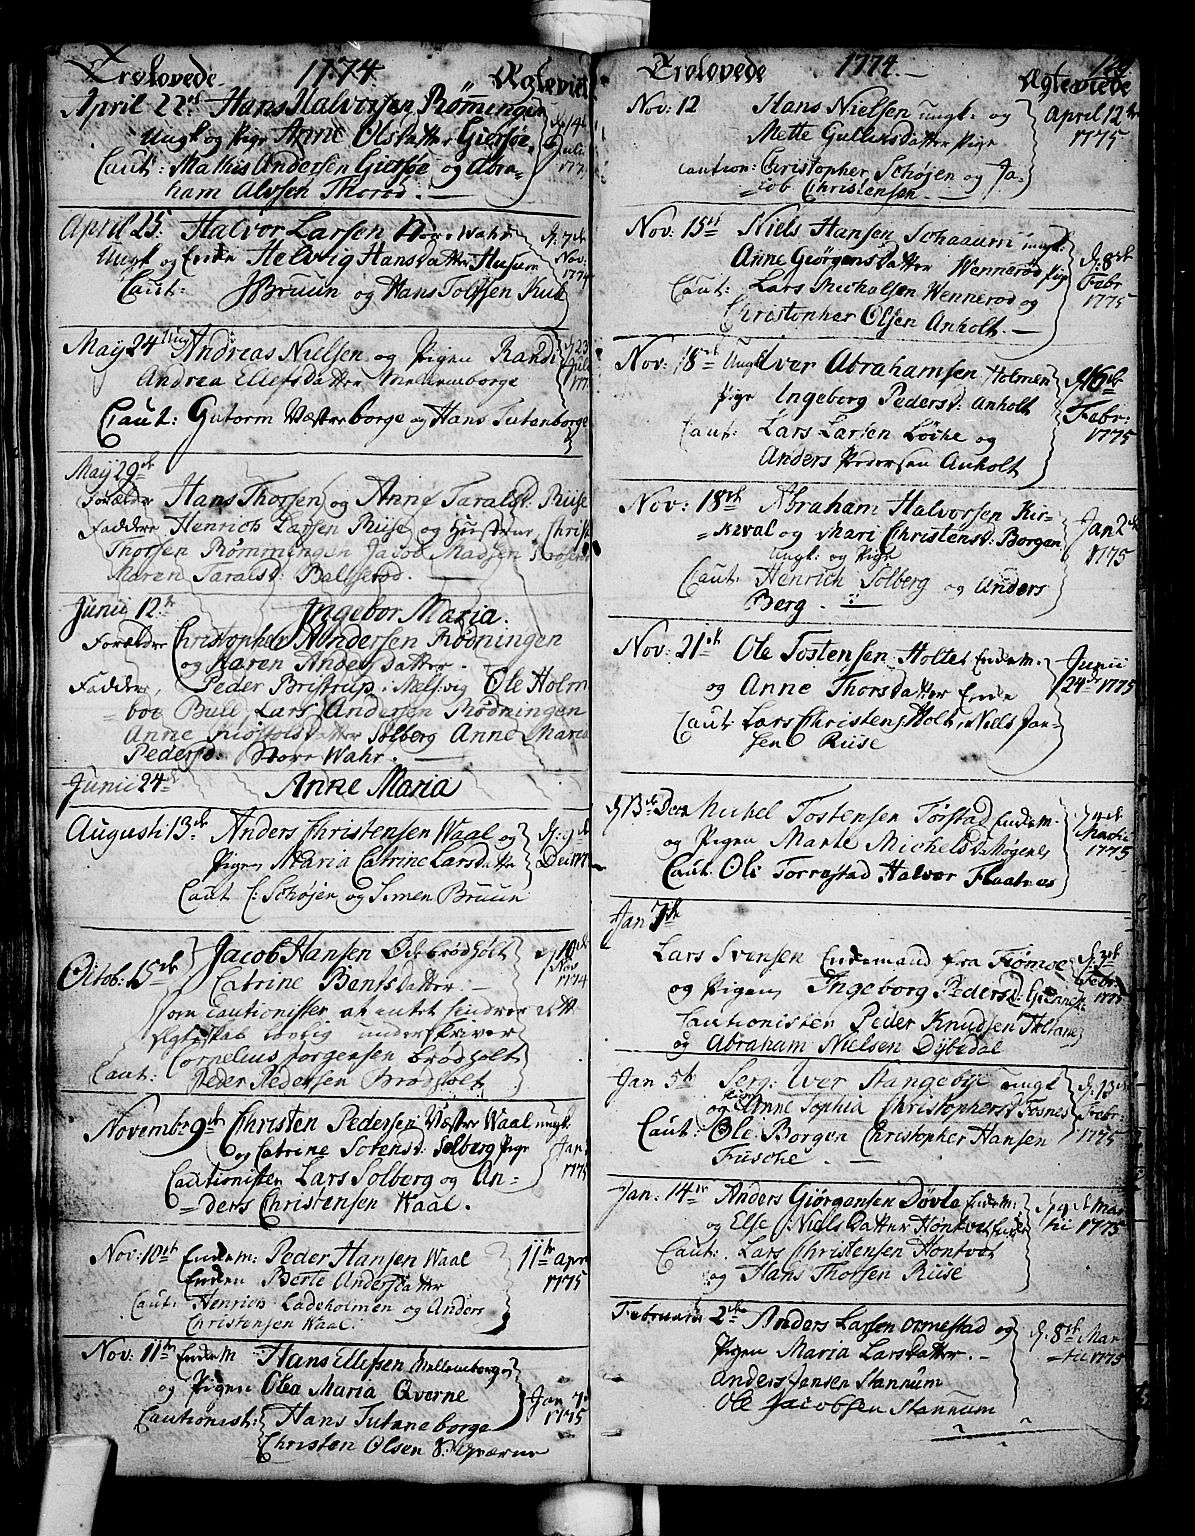 Trolovede 1774. Ægteviet
April 22d Hans Halvorsen Rømmingen
Ungk og Pige Anne Olsdatter Giersøe
Caut: Mathis Andersen Giersøe og Abra-
ham Alvsen Thorød. —
April 25. Halvor Larsen Nore Wahr
Ungk og Enke Helvig Hansdatter Husum
Caut: JBruun og Hans Tolfsen
d. 7de Nov. 1774
May 24 Ungk Andreas Nielsen og Pigen Randi
Andrea Ellefsdatter Mellemborge
Caut: Gutorm Vesterborge og Hans Tutenborge
May 29de
Forældre Hans Thorsen og Anne Taralsd: Riise
Faddere Henrich Larsen Riise og Hustrue
Thorsen Rømmingen Jacob Madsen
Maren Taralsd: Ballserød. —
Junii 12te Ingebor Maria.
Forældre Christopher Andersen Rødningen
og Karen Andersdatter.
Faddere, Peder Bristrup i Melsvig Ole Holm
boe Bull, Lars Andersen Rødningen
Anne datter Solberg Anne Maria
Pedersd: Nore Wahr. —
Junii 24de Anne Maria
Augusti 13de Anders Christensen Waal og
Pigen Maria Catrine Larsdatter
Caut C: Schøjen og Simen Bruun
Octob: 15de Jacob Hansen Brødholt
Catrine Bentsdatter. —
som Cautionister at intet hindrer dette
Ægteskab lovlig underskriver
Cornelius Jorgensen Brødholt
Caut: Peder Pedersen Brødholt
d. 10de Nov 1774
Novembr 9de Christen Pedersen Vester Waal ungk.
og Catrine Sorensd: Solberg Pige
Cautionisten Lars Solberg og An-
ders Christensen Waal.
Jan 1775
Nov: 10de Enkem: Peder Hansen Waal
Enken Berte Andersdatter
Caut: Henrich Ladeholmen og Anders
Christensen Waal.
11te apr 1775
Nov: 11te Enkem Hans Ellefsen Mellemborge
og Pigen Olea Maria Qverne
Cautionist: Hans Tutaneborge
Christen Olsen Qværne
Jan 7 1775
Trolovede 1774. — Ægteviede
Nov: 12 Hans Nielsen ungk: og
Mette Gullichsdatter Pige
caution: Christopher Schøjen og Ja-
cob Christensen. —
April 12te 1775
Nov: 15de Niels Hansen Schaaum ungk:
Anne Giörgensdatter Wennerød Pige
Caut: Lars Michelsen Wennerød og
Christopher Olsen Anholt. —
d. 8de Febr 1775
Nov: 18de Ungk Iver Abrahamsen Holmen
Pige Ingeborg Pedersd: Anholt
Caut: Lars Larsen Løche og
Anders Pedersen Anholt
Febr: 1775
Nov: 18de Abraham Halvorsen Kir-
keval og Mari Christensd: Borgan
Ungk: og Pige
Caut: Henrich Solberg og Anders
Berg. —
Jan 2de 1775
Nov: 21de Ole Tostensen Holtet Enkem.
og Anne Thorsdatter Enke
Caut: Lars Christens: Holt, Niels Jan-
sen Riise
Junii 24de 1775
d 13de Dec Michel Tostensen Torstad Enkem.
og Pigen Marte Michelsd:
Caut. Ole Torrestad Halvor Flaatnes
d. 4de Martii 1775
Jan 7de
Lars Svensen Enkemand fra Tiømøe
og Pigen Ingeborg Pedersd:
Cautionisten Peder Knudsen Holtane
og Abraham Nielsen Dybedal
Jan 5te Serg: Iver Stangebÿe ungk
og Pigen Anne Sophia Christophersd Fosnes
Caut: Ole Borgen Christopher Hansen
Fusche. —
d. 13de Febr. 1775
Jan: 14de Anders Giörgensen Døvle Enkem:
og Else Nielsdatter Hontvet Enke
Caut: Lars Christensen Hontvet
og Hans Thorsen Riise
Martii 1775
Februarii 2de Anders Larsen Ornestad og
Pigen Maria Larsdatter. —
Anders Jansen Stannum
Ole Jacobsen Stannum
d. 8de Mar-
tii 1775